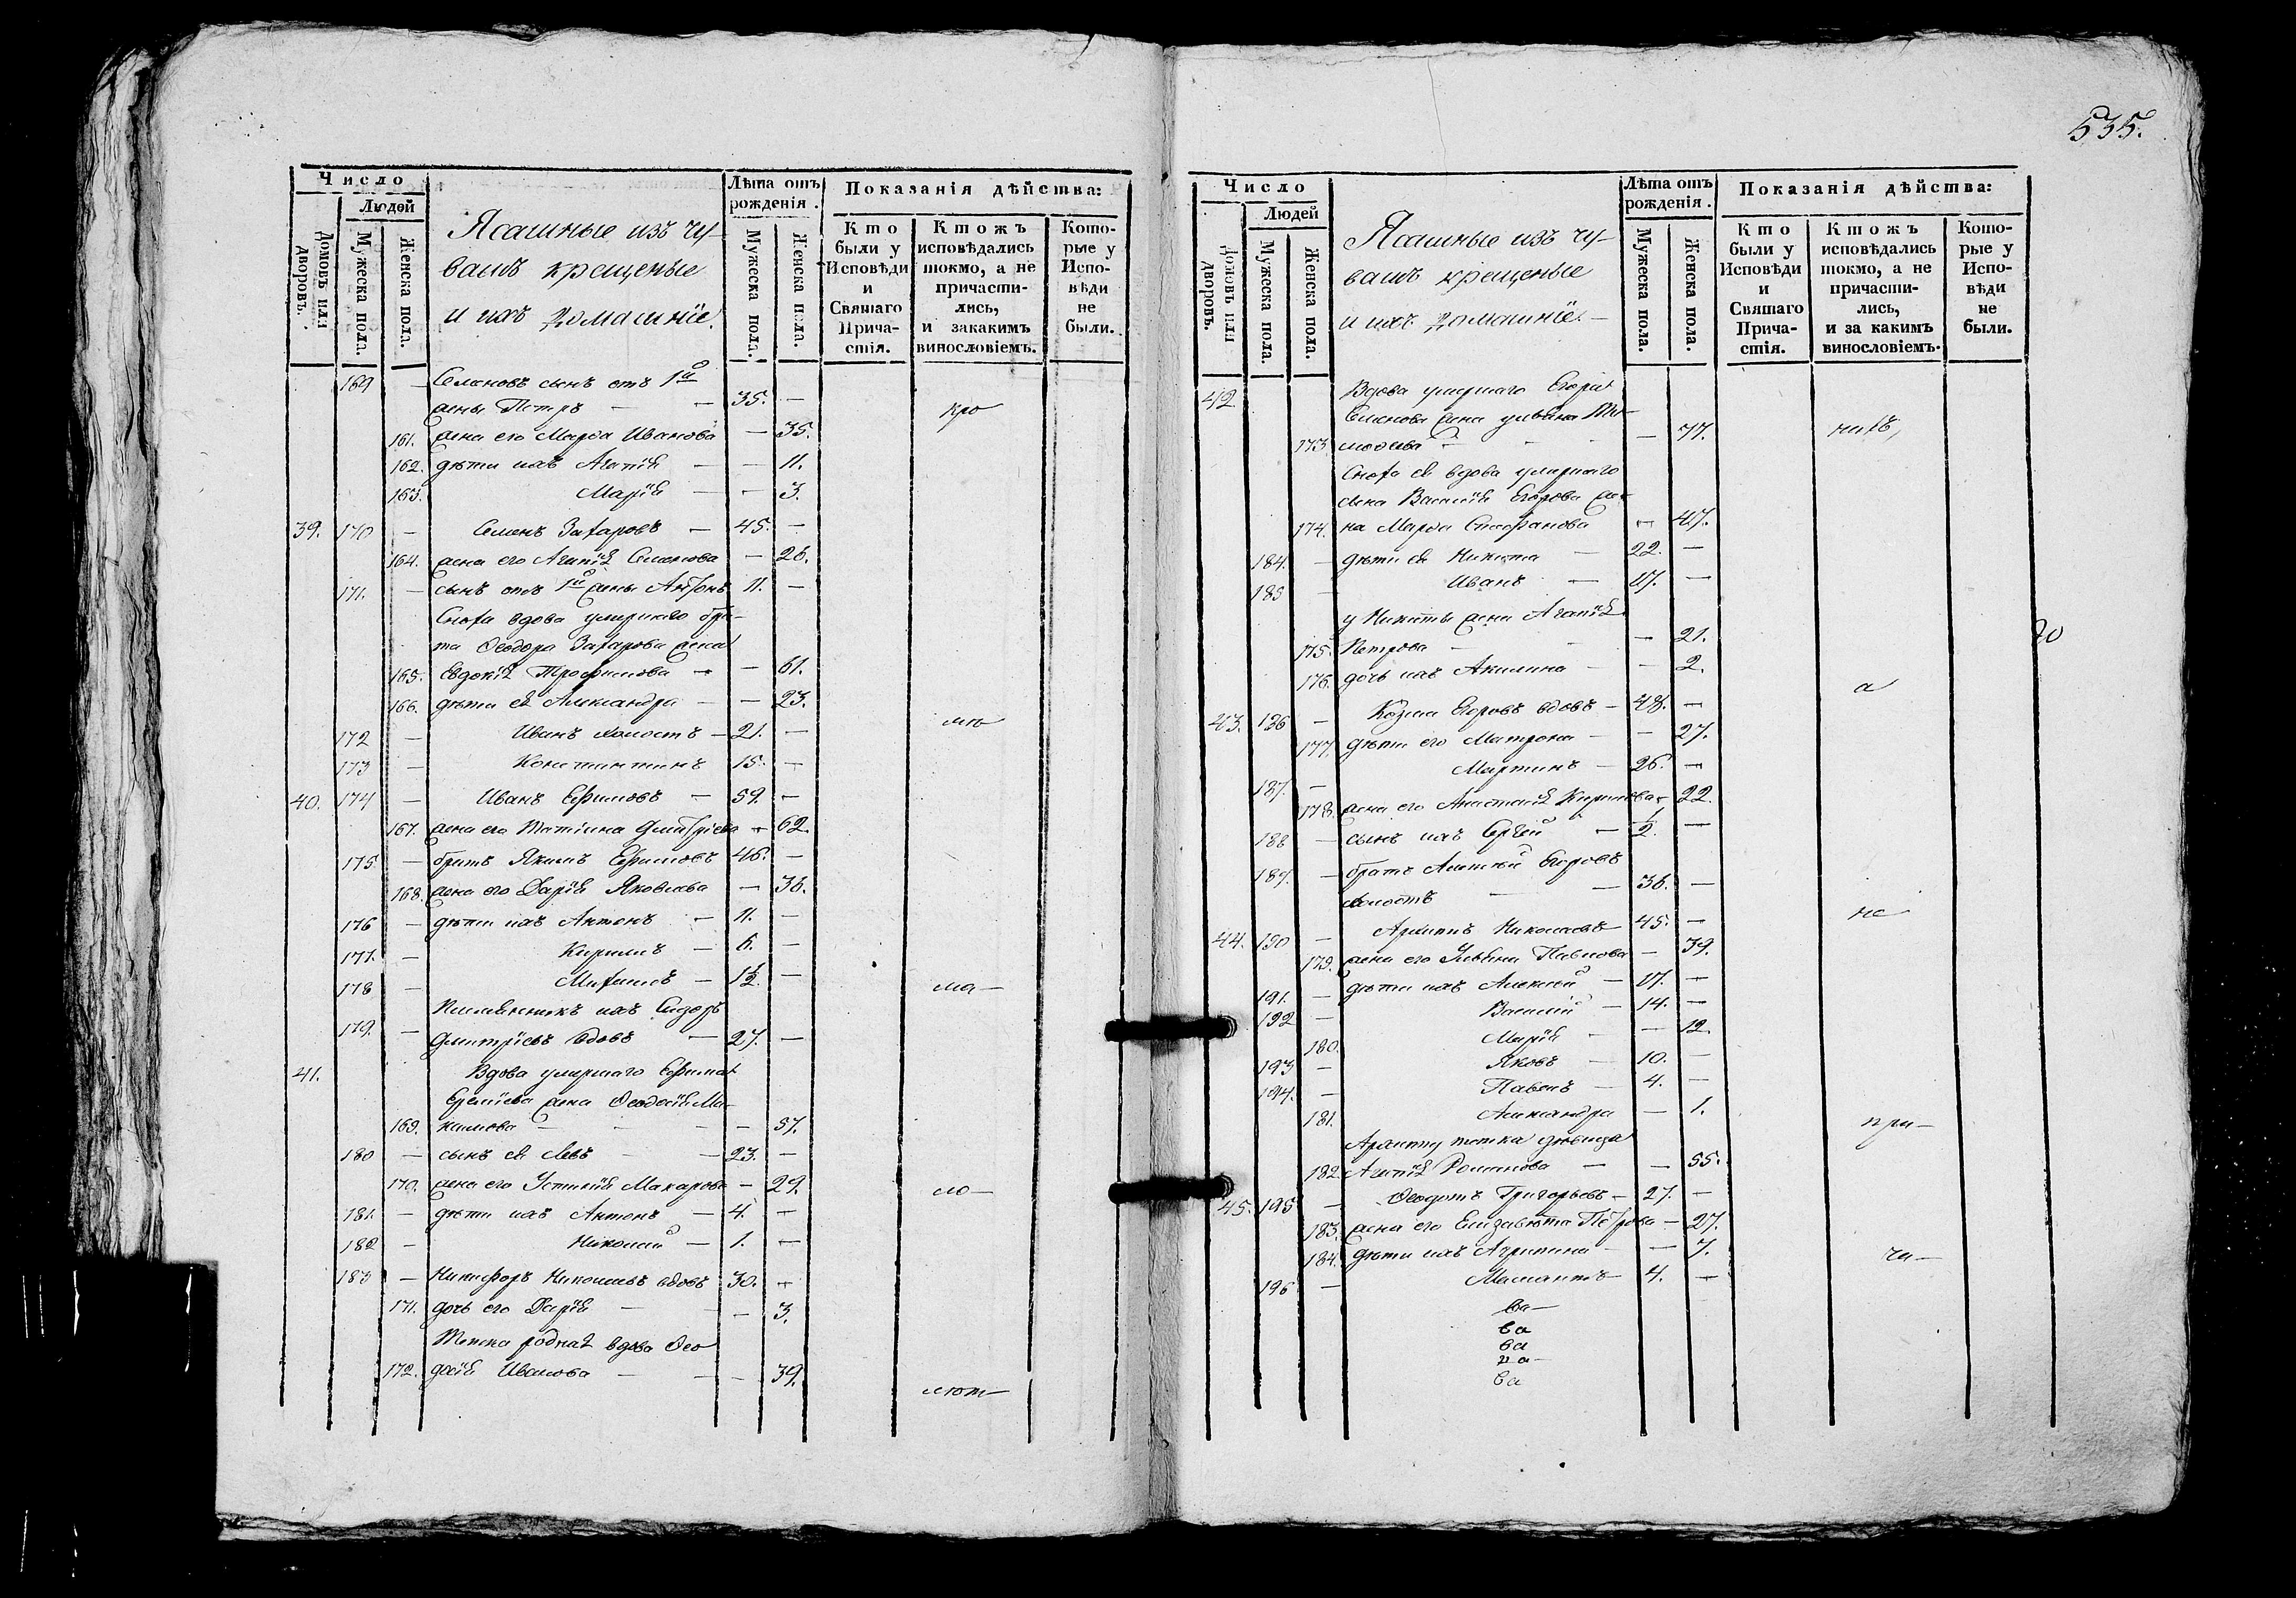 535.
Число
Людей
Домовъ или дворовъ.
Мужеска пола.
Женска пола.
Ясашные изъ чу-
вашъ крещеные
и ихъ домашніе.
Лѣта отъ рожденія.
Мужеска пола.
Женска пола.
Показанія дѣйства:
Кто были у Исповѣди и Святаго Прича-стія.
Ктожъ исповѣдались токмо, а не причасти-лись, и закакимъ винословіемъ.
Кото-рые у Испо-вѣди не были.
169 — Семеновъ сынъ отъ 1й
жены Петръ — — 35. —
кро
161. жена его Марѳа Иванова — 35.
162. дѣти ихъ Агапія — — 11.
163. Марія — — 3.
39. 170 — Семенъ Захаровъ — 45. —
164. жена его Агапія Семенова — 26.
171. — сынъ отъ 1й жены Антонъ 11. —
Сноха вдова умершаго бра-
та Ѳеодора Захарова жена
165. Евдокія Трофимова — — 61.
166. дѣти ея Александра — — 23.
мѣ
172 — Иванъ холостъ — 21. —
173 — Константинъ 15. —
40. 174 — Иванъ Ефимовъ — 59. —
167. жена его Татіана Дмитріева — 62.
175 — братъ Якимъ Ефимовъ 46. —
168. жена его Дарія Яковлева — 36.
176 — дѣти ихъ Антонъ — 11. —
177. — Кирилъ — 6. —
178 — 1½ —
ма —
Племянникъ ихъ Сидоръ
179. — Дмитріевъ вдовъ — 27. —
41. Вдова умершаго Ефима
Еремѣева жена Ѳеодосія Ма-
169. кимова — — — — 57.
180 — сынъ ея Левъ — — 23. —
170. жена его Устинія Макарова — 29.
ло —
181. — дѣти ихъ Антонъ — 4. —
182 — Николай — 1. —
183 — Никифоръ Николаевъ вдовъ 30. —
171. дочь его Дарія — — — 3.
Тетка родная вдова Ѳео
172. досія Иванова — — — 39.
лют —
Число
Людей
Домовъ или дворовъ.
Мужеска пола.
Женска пола.
Ясашные изъ чу-
вашъ крещеные
и ихъ домашніе. —
Лѣта отъ рожденія.
Мужеска пола.
Женска пола.
Показанія дѣйства:
Кто были у Исповѣди и Святаго Прича-стія.
Ктожъ исповѣдались токмо, а не причасти-лись, и за какимъ винословіемъ.
Кото-рые у Испо-вѣди не были.
42 Вдова умершаго Егора
Семенова жена Ульяна Ти-
173. моѳеева — — — — 77.
Сноха ея вдова умершаго
сына Василія Егорова же-
174. на Марѳа Стефанова — 47.
184. — дѣти ея Никита — 22. —
185 — Иванъ — 17. —
у Никиты жена Агапія
175. Петрова — — — 21.
176. дочь ихъ Акилина — — 2.
а
43. 186 — Козма Егоровъ вдовъ — 48. —
177. дѣти его Матрона — — 27.
Мартинъ — 26. —
187. —
178. жена его Анастасія Кирилова — 22.
188 — сынъ ихъ Сергей — ½. —
189. — братъ Алексѣй Егоровъ
холостъ — — 36. —
не
44. 190 — Архипъ Николаевъ 45. —
179. жена его Ульяна Павлова — 39.
191. — дѣти ихъ Алексѣй — 17. —
192 — Василій — 14. —
180. Марія — — 12.
193 — Яковъ — 10. —
194. — Павелъ — 4. —
181. Александра — 1.
при —
Архипу тетка дѣвица
182. Агапія Романова — — 55.
45. 195 — Ѳеодотъ Григорьевъ — 27. —
183. жена его Елизавета Петрова — 27.
184. дѣти ихъ Агрипина — — 7.
ча —
196 — 4. —
ва —
ва
ва
на —
ва